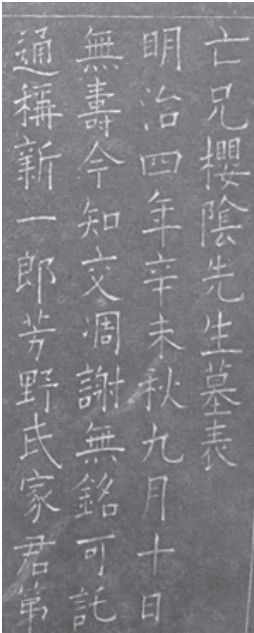 亡兄櫻陰先生墓表
明治四年辛未秋九月十日
無壽今知交凋謝無銘可託
通稱新一郎芳野氏家君第